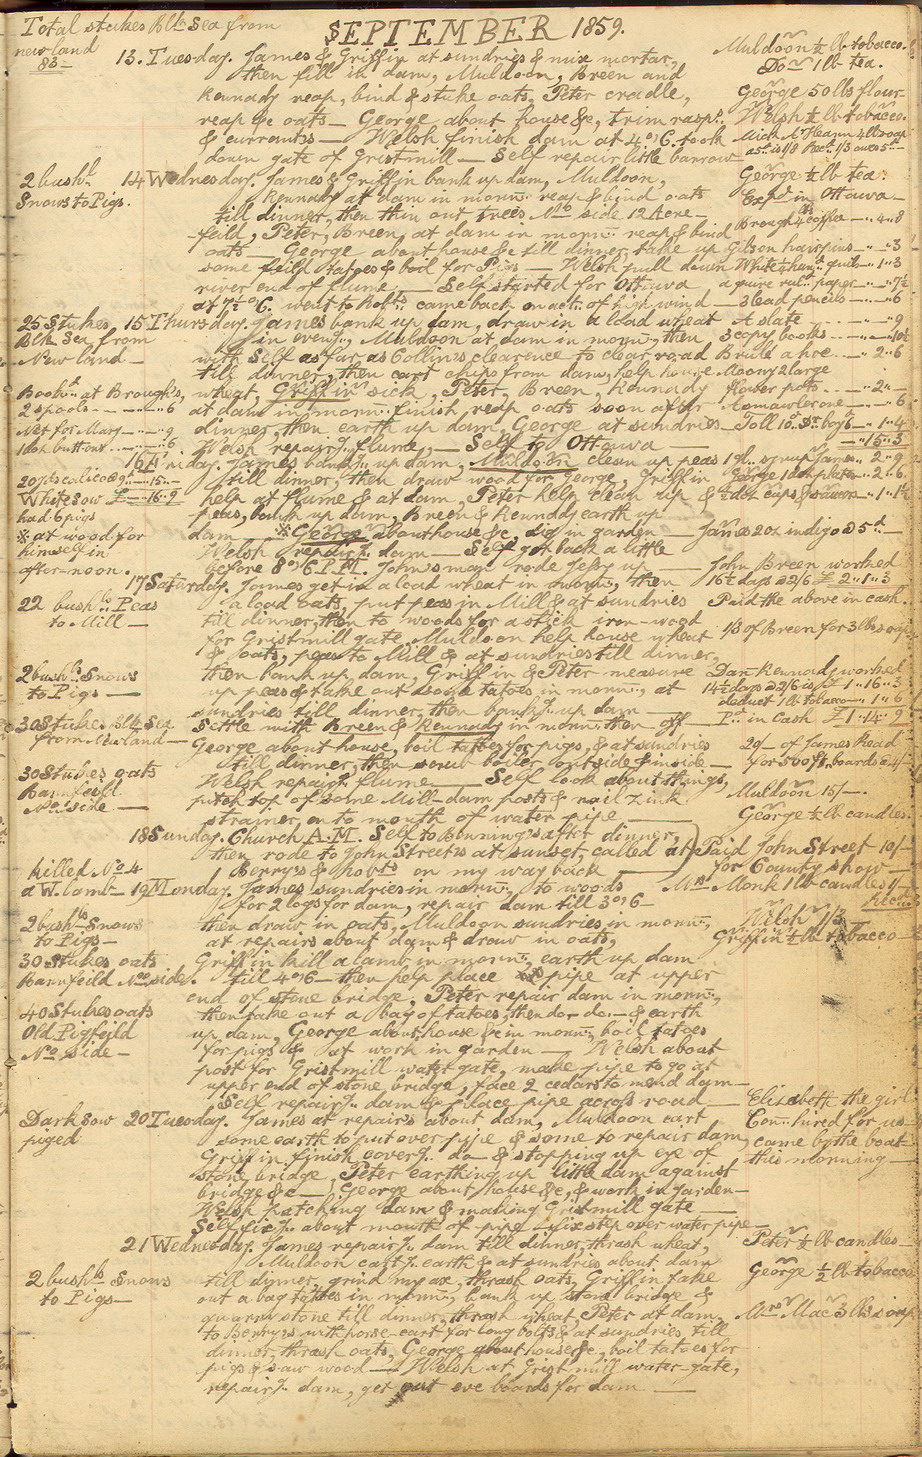 Total stukes Blk Sea from
SEPTEMBER 1859.
new land
83 =
13. Tuesday. James & Griffin at sundries & mix mortar,
then fill in dam, Muldoon, Breen and
Kennady reap, bind & stuke oats, Peter cradle,
reap &c oats — George about house &c, trim rasps.
& currants — Welsh finish dam at 4 o'C. took
down gate of Gristmill — Self repair little barrow
Muldoon ½ lb tobacco.
Do 1 lb tea.
George 50 lbs flour
Welsh ½ lb tobacco.
2 bushls
Snows to Pigs.
14 Wednesday. James & Griffin bank up dam, Muldoon,
Kennady at dam in morng. reap & bind oats
till dinner, then thin out trees No side 12 Acre
feild, Peter, Breen, at dam in morng. reap & bind
oats — George about house &c till dinner, take up
some feild tatoes & boil for Pigs — Welsh pull down
river end of flume, — Self started for Ottawa
at 7½ o'C. went to Robts. came back on act. of high wind —
George ½ lb tea.
Expd in Ottawa —
Brough 4 coffee — 4 „ 8
Gibson hairpins — „ 3
a quire rul. paper — „ 7½
3 lead pencils — „ 6
25 Stukes
Blk Sea from
New land —
15 Thursday. James bank up dam, draw in a load wheat
in eveng., Muldoon at dam in morng., then
with Self as far as Collins clearence to clear road
till dinner, then cart chips from dam, help house
wheat, Griffin sick, Peter, Breen, Kennady
at dam in morng. finish, reap oats soon after
dinner, then earth up dam, George at sundries
Welsh repairg. flume, — Self to Ottawa —
A slate — „ 9
3 copy books — „ 10½
Brulé a hoe — 2 „ 6
Moony 2 large
flower pots — „ 2 „ —
15 „ 3
Bookn. at Broughs,
2 spools — „ 6
Net for Mary — „ 9
1 doz buttons — „ 6
White Sow
had 6 pigs
※ at wood for
himself in
after-noon.
16 Friday. James bankg. up dam, Muldoon clean up peas
till dinner, then draw wood for George, Griffin
help at flume & at dam, Peter help clean up
peas, bank up dam, Breen & Kennady earth up
dam — ※ George about house &c, dig in garden —
Welsh repairg. dam — Self got back a little
before 8 o'C P.M. John's man rode Jessy up —
James 2 oz indigo @ 5d —
22 bushls. Peas
to Mill —
17 Saturday. James get in a load wheat in morng., then
a load oats, put peas in Mill & at sundries
till dinner, then to woods for a stick iron-wood
for Gristmill gate, Muldoon help house wheat
& oats, peas to Mill & at sundries till dinner,
then bank up dam, Griffin & Peter measure
up peas & take out some tatoes in morng., at
sundries till dinner, then bankg. up dam —
Settle with Breen & Kennady in morng. then off —
George about house, boil tatoes for pigs, & at sundries
till dinner, then scrub boiler outside & inside —
Welsh repairg. flume — Self look about things,
pitch top of some Mill-dam posts & nail zink
strainer, on to mouth of water pipe —
John Breen worked
16½ days @ 2/6 £ 2 „ 1 „ 3
Paid the above in cash.
1/3 of Breen for 3 lbs soap
Danl. Kennady worked
14½ days @ 2/6 is £ 1 „ 16 „ 3
deduct 1 lb tobacco — 1 „ 6
Pd. in Cash £ 1 „ 14 „ 9
29/- of James Read
for 500 ft. boards
Muldoon 15/—.
George ½ lb candles.
2 bushls. Snows
to Pigs —
30 Stukes Blk Sea
from New land —
30 Stukes oats
Barnfeild
No. side. —
18 Sunday. Church A.M. Self to Benning's after dinner,
then rode to John Street's at sunset, called at
Berry's & Robts on my way back —
Paid John Street 10/-
for County show —
Killed No. 4
a W. lamb —
19 Monday. James sundries in morng. to woods
for 2 logs for dam, repair dam till 3 o'C
then draw in oats, Muldoon sundries in morng.,
at repairs about dam & draw in oats,
Griffin kill a lamb in morng., earth up dam
till 4 o'C — then help place pipe at upper
end of stone bridge, Peter repair dam in morng.,
then take out a bag of tatoes, then do do. — & earth
up dam, George about house &c in morng. boil tatoes
for pigs & at work in garden — Welsh about
post for Gristmill water gate, make pipe to go at
upper end of stone bridge, face 2 cedars to mend dam —
Self repairg. dam & place pipe across road —
Mrs Monk 1 lb candles 1/-
Recd.
Welsh 1/3
Griffin ½ lb tobacco —
2 bushls. Snows
to Pigs —
30 Stukes oats
Barnfeild No. side.
40 Stukes oats
Old Pigfeild
No. Side —
Dark sow
piged
20 Tuesday. James at repairs about dam, Muldoon cart
some earth to put over pipe & some to repair dam,
Griffin finish coverg. do & stopping up eye of
stone bridge, Peter earthing up little dam against
bridge &c — George about house &c, & work in garden —
Welsh patching dam & making Gristmill gate —
Self fixg. about mouth of pipe — fix step over water pipe —
Elizabeth the girl
Con. hired for us
came by the boat
this morning —
21 Wednesday. James repairg. dam till dinner, thrash wheat,
Muldoon cartg. earth & at sundries about dam
till dinner, grind my ax, thrash oats, Griffin take
out a bag tatoes in morng., bank up stone bridge &
quarry stone till dinner, thrash wheat, Peter at dam,
to Berry's with horse-cart for long bolts & at sundries till
dinner, thrash oats, George about house &c, boil tatoes for
pigs & saw wood — Welsh at Grist mill water-gate,
repairg. dam, get out eve boards for dam —
Peter ½ lb candles
George ½ lb tobacco
Mrs Mac 3 lbs soap
2 bushls Snows
to Pigs —